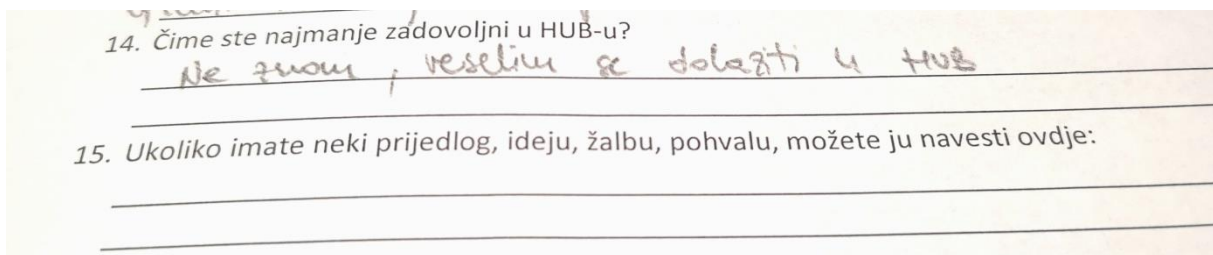 14. Čime ste najmanje zadovoljni u HUB-u?
Ne znam, veselim se dolaziti u HUB
15. Ukoliko imate neki prijedlog, ideju, žalbu, pohvalu, možete ju navesti ovdje: